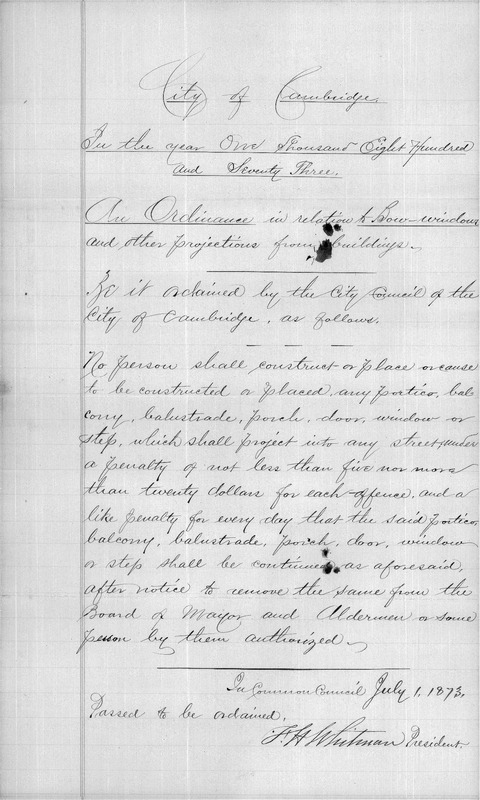 City of Cambridge.
In the year One Thousand Eight Hundred
and Seventy Three.
An Ordinance in relation to Bow-windows
and other projections from buildings.
Be it ordained by the City Council of the
City of Cambridge, as follows.
No person shall construct or place or cause
to be constructed or placed, any portico, bal
cony, balustrade, porch, door, window or
step, which shall project into any street, under
a penalty of not less than five nor more
than twenty dollars for each offence, and a
like penalty for every day that the said portico,
balcony, balustrade, porch, door, window
or step shall be continued as aforesaid,
after notice to remove the same from the
Board of Mayor and Aldermen or some
person by them authorized.
In Common Council July 1, 1873.
Passed to be ordained.
F. H. Whitman President.